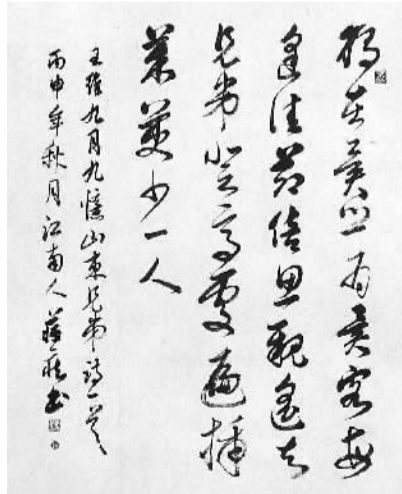 獨在異鄉為異客每
逢佳節倍思親遙知
兄弟登高處遍插
茱萸少一人
王維九月九憶山東兄弟詩一首
丙申年秋月江南人蔣書